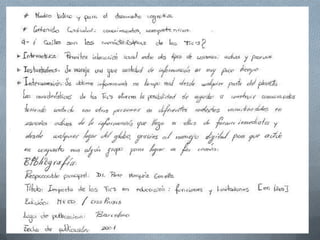 * Medio básico y para el desarrollo cognitivo
* Contenido Contextual: conocimientos, comportamientos.
q-¿ Cuáles son las características de las TIC'S?
Interactiva: Permite interacción igual entre dos tipos de usuarios: activos y pasivos
Instantánea: Se maneja una gran cantidad de información en muy poco tiempo
Interconexión: Se obtiene información en tiempo real desde cualquier parte del planeta
Las características de las Tics ofrecen la posibilidad de ayudar a mantener comunicados
teniendo contacto con otras personas en diferentes
de la información que llega a ellos de forma inmediata y
desde cualquier lugar del globo, gracias al manejo digital para que exista
en conjunto con algún grupo para lograr un fin común.
Bibliografía.
Responsable principal: Dr. Pere Marqués Graells
Título: Impacto de las TICs en educación: funciones y limitaciones [en línea]
Edición:
Lugar de publicación: Barcelona
Fecha de publicación: 2001